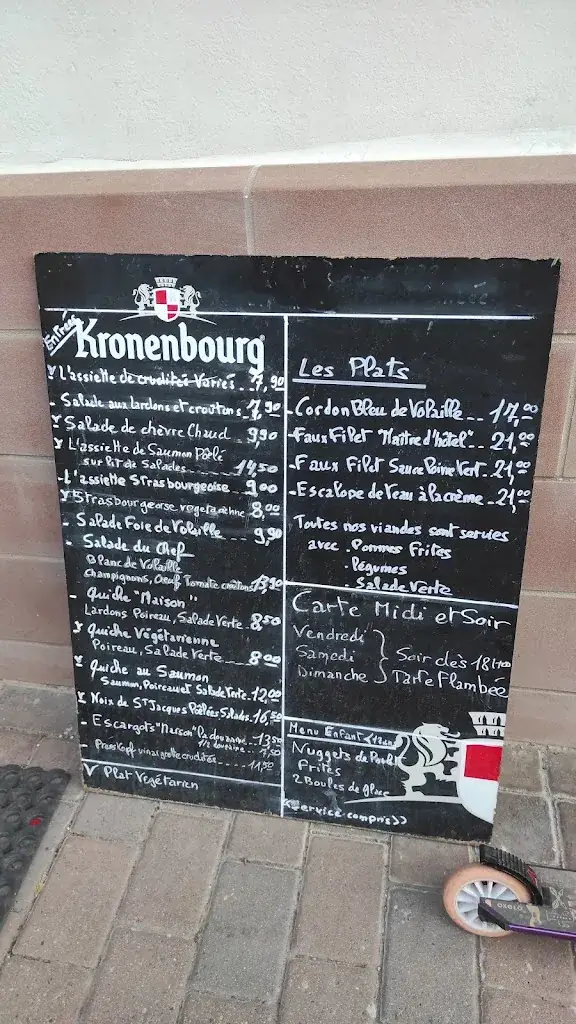 Entrées
Kronenbourg
V L'assiette de crudités Variés - 7,90
- Salade aux Lardons et croutons 7,90
V Salade de chèvre Chaud 9,90
V L'assiette de Saumon Pôlé
sur lit de Salades 14,50
- L'assiette Strasbourgeoise 9,00
V Strasbourgeoise vegetarienne 8,00
- Salade Foie de Volaille 9,90
- Salade du Chef
Blanc de Volaille
Champignons, Oeuf Tomate croûtons 13,90
- Quiche "Maison"
Lardons Poireau, Salade Verte 8,50
V Quiche Végétarienne
Poireau, Salade Verte 8,00
V Quiche au Saumon
Saumon, Poireau et Salade Verte 12,00
V Noix de ST Jacques Poêlées Salade 16,50
- Escargots "Maison" La douzaine 13,50
1/2 douzaine
- Presskopf vinaigrette crudités
V Plat Végétarien
Les Plats
- Cordon Bleu de Volaille -- 17,00
- Faux Filet "Maître d'hôtel" -- 21,00
- Faux Filet Sauce Poivre Vert - 21,00
- Escalope de Veau à la crème - 21,00
Toutes nos viandes sont servies
avec . Pommes Frites
. Légumes
. Salade Verte
Carte Midi et Soir
Vendredi
Samedi } Soir dès 18H00
Dimanche Tarte Flambée
Menu Enfant
Nuggets de Poulet
Frites
2 Boules de glace
Service compris))
OXELO